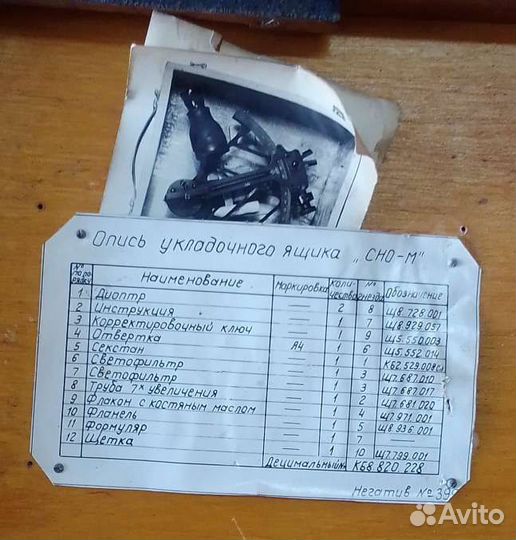 Опись укладочного ящика „СНО-М"
№ по по-рядку Наименование Маркировка Коли-чество № гнезда Обозначение
1 Диоптр — 2 8 Щ8.728.001
2 Инструкция — 1 7 Щ8.929.057
3 Корректировочный ключ — 1 9 Щ5.550.003
4 Отвертка — 1 6 Щ5.552.014
5 Секстан Я4 1 КБ2.529.008сп
6 Светофильтр — 1 3 Щ7.687.010
7 Светофильтр — 1 3 Щ7.687.017
8 Труба 7ˣ увеличения — 1 2 Щ7.681.020
9 Флакон с костяным маслом — 1 4 Щ7.971.001
10 Фланель — 1 5 Щ8.936.001
11 Формуляр — 1 7
12 Щетка — 1 10 Щ7.799.001
Децимальный № КБ8.820.228
Негатив № 39
Avito